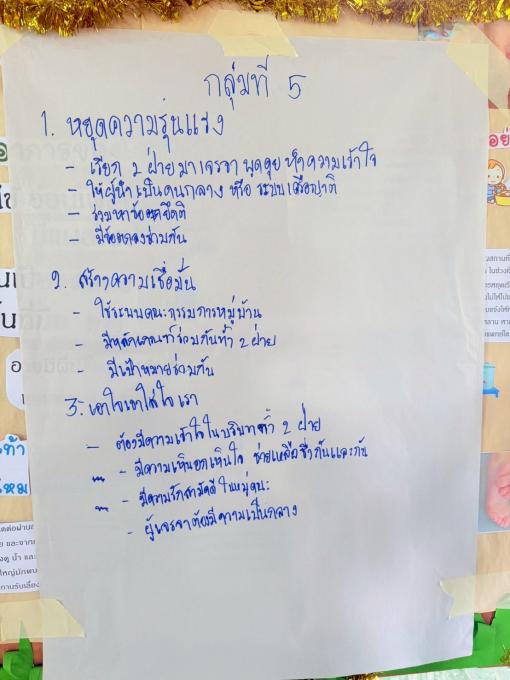 กลุ่มที่ 5
1. หยุดความรุนแรง
- เรียก 2 ฝ่าย มาเจรจา พูดคุย ทำความเข้าใจ
- ให้ผู้นำเป็นคนกลาง หรือ ระบบเครือญาติ
- ร่วมหาข้อยุติ
- มีข้อตกลงร่วมกัน
2. สร้างความเชื่อมั่น
- ใช้ระบบคณะกรรมการหมู่บ้าน
- มีหลักเกณฑ์ร่วมกันทั้ง 2 ฝ่าย
- มีเป้าหมายร่วมกัน
3. เอาใจเขาใส่ใจเรา
- ต้องมีความเข้าใจในบริบททั้ง 2 ฝ่าย
- มีความเห็นอกเห็นใจ ช่วยเหลือซึ่งกันและกัน
- มีความรักสามัคคีในหมู่คณะ
- ผู้เจรจาต้องมีความเป็นกลาง